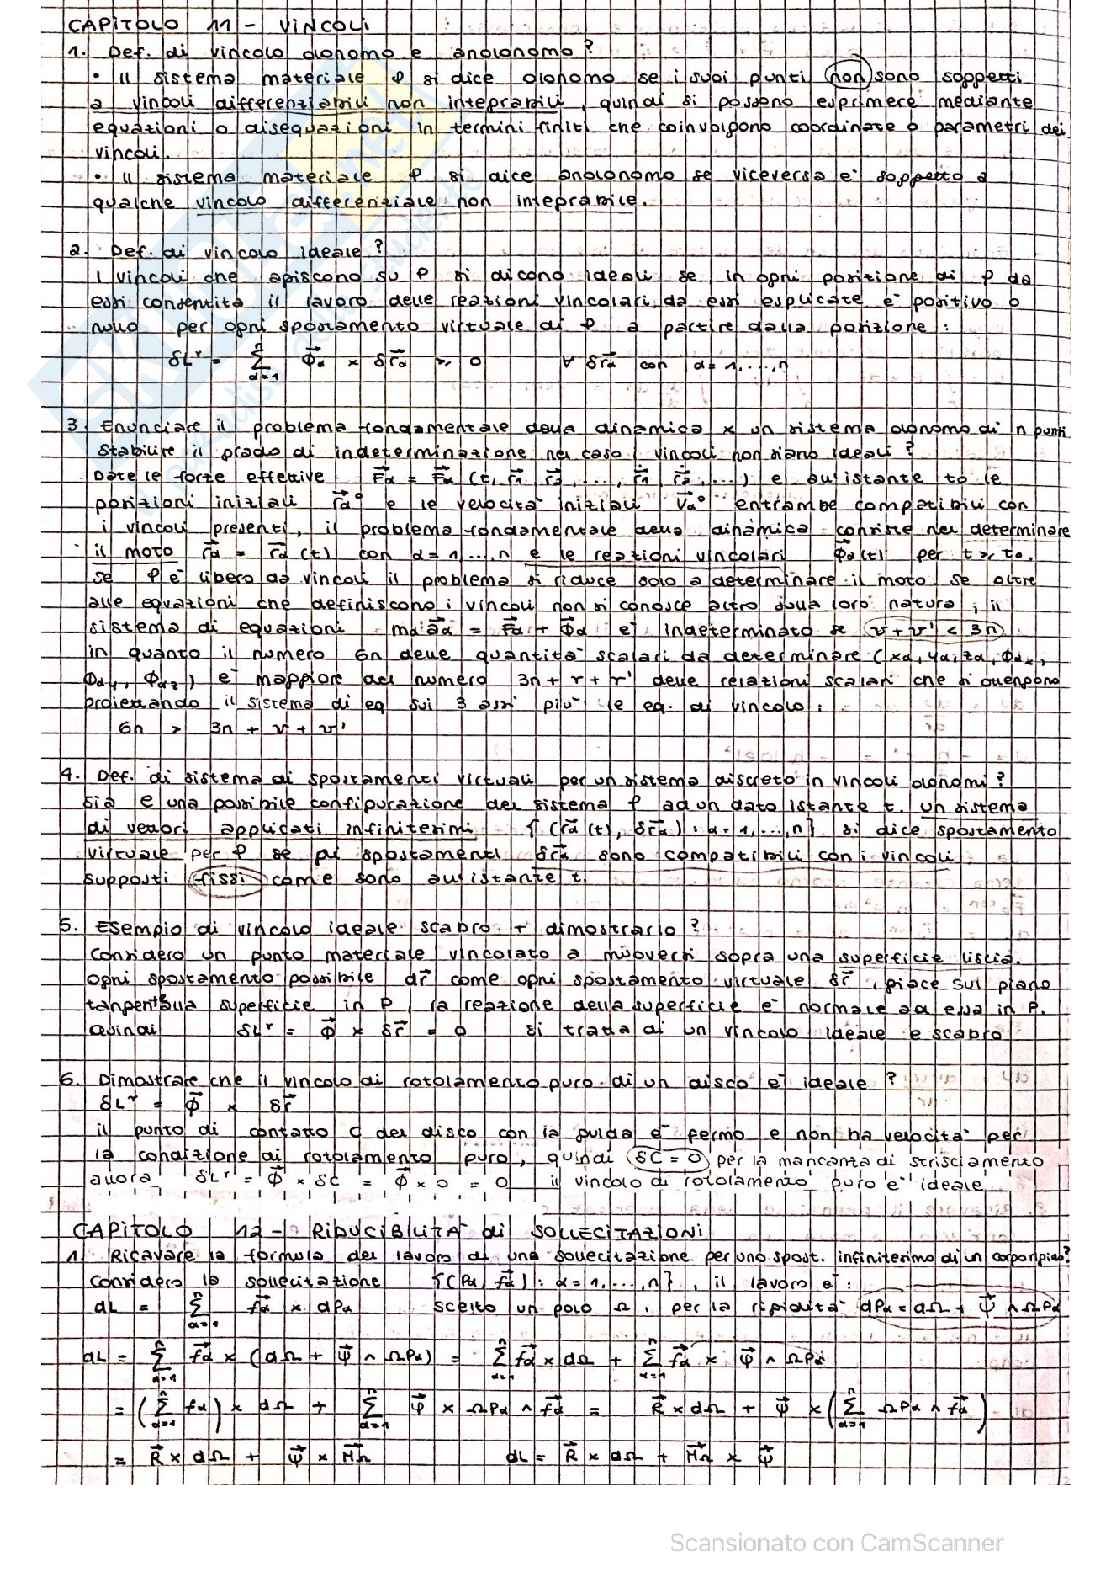 CAPITOLO 11 - VINCOLI
1. Def. di vincolo olonomo e anolonomo?
• Il sistema materiale P si dice olonomo se i suoi punti non sono soggetti
a vincoli differenziabili non integrabili, quindi si possono esprimere mediante
equazioni o disequazioni in termini finiti che coinvolgono coordinate o parametri dei
vincoli.
• Il sistema materiale P si dice anolonomo se viceversa e' soggetto a
qualche vincolo differenziale non integrabile.
2. Def. di vincolo ideale?
I vincoli che agiscono su P si dicono ideali se in ogni posizione di P da
essi consentita il lavoro delle reazioni vincolari da essi esplicate e' positivo o
nullo per ogni spostamento virtuale di P a partire dalla posizione:
δLʳ = Σ(α=1→n) Φ⃗α × δr⃗α ≥ 0 ∀ δr⃗α con α = 1,...,n
3. Enunciare il problema fondamentale della dinamica x un sistema olonomo di n punti
Stabilire il grado di indeterminazione nel caso i vincoli non siano ideali?
Date le forze effettive F⃗α = F⃗α (t, r⃗1, r⃗2, ..., ṙ⃗1, ṙ⃗2, ...) e all'istante t0 le
posizioni iniziali r⃗α° e le velocità iniziali v⃗α° entrambe compatibili con
i vincoli presenti, il problema fondamentale della dinamica consiste nel determinare
il moto r⃗α = r⃗α (t) con α = 1,...,n e le reazioni vincolari Φ⃗α(t) per t ≥ t0.
Se P e' libero da vincoli il problema si riduce solo a determinare il moto se oltre
alle equazioni che definiscono i vincoli non si conosce altro sulla loro natura, il
sistema di equazioni mαa⃗α = F⃗α + Φ⃗α e' indeterminato se r + r' < 3n
in quanto il numero 6n delle quantità scalari da determinare (xα, yα, zα, Φαx,
Φαy, Φαz) e' maggiore del numero 3n + r + r' delle relazioni scalari che si ottengono
proiettando il sistema di eq sui 3 assi più le eq. di vincolo:
6n > 3n + r + r'
4. Def. di sistema di spostamenti virtuali per un sistema discreto in vincoli olonomi?
Sia e una possibile configurazione del sistema P ad un dato istante t. un sistema
di vettori applicati infinitesimi {(r⃗α (t), δr⃗α) : α = 1,...,n} si dice spostamento
virtuale per P se gli spostamenti δr⃗α sono compatibili con i vincoli
supposti fissi come sono all'istante t.
5. Esempio di vincolo ideale scabro + dimostrarlo?
Considero un punto materiale vincolato a muoversi sopra una superficie liscia.
ogni spostamento possibile dr⃗ come ogni spostamento virtuale δr⃗, giace sul piano
tangent alla superficie in P, la reazione della superficie e' normale ad essa in P.
Quindi δLʳ = Φ⃗ × δr⃗ = 0 si tratta di un vincolo ideale e scabro
6. Dimostrare che il vincolo di rotolamento puro di un disco e' ideale?
δLʳ = Φ⃗ × δr⃗
il punto di contatto C del disco con la guida e' fermo e non ha velocità per
la condizione di rotolamento puro, quindi δC = 0 per la mancanza di strisciamento
allora δLʳ = Φ⃗ × δC = Φ⃗ × 0 = 0 il vincolo di rotolamento puro e' ideale
CAPITOLO 12 - RIDUCIBILITÀ di SOLLECITAZIONI
1. Ricavare la formula del lavoro di una sollecitazione per uno spost. infinitesimo di un corpo rigido?
Considero la sollecitazione {(Pα, f⃗α) : α = 1,...,n}, il lavoro e':
dL = Σ f⃗α × dPα scelto un polo Ω, per la rigidità dPα = dΩ + Ψ⃗ ∧ ΩPα
dL = Σ(α=1→n) f⃗α × (dΩ + Ψ⃗ ∧ ΩPα) = Σ(α=1→n) f⃗α × dΩ + Σ(α=1→n) f⃗α × Ψ⃗ ∧ ΩPα
= (Σ(α=1→n) fα) × dΩ + Σ(α=1→n) Ψ⃗ × ΩPα ∧ f⃗α = R⃗ × dΩ + Ψ⃗ × (Σ(α=1→n) ΩPα ∧ f⃗α)
= R⃗ × dΩ + Ψ⃗ × M⃗Ω dL = R⃗ × dΩ + M⃗Ω × Ψ⃗
Scansionato con CamScanner